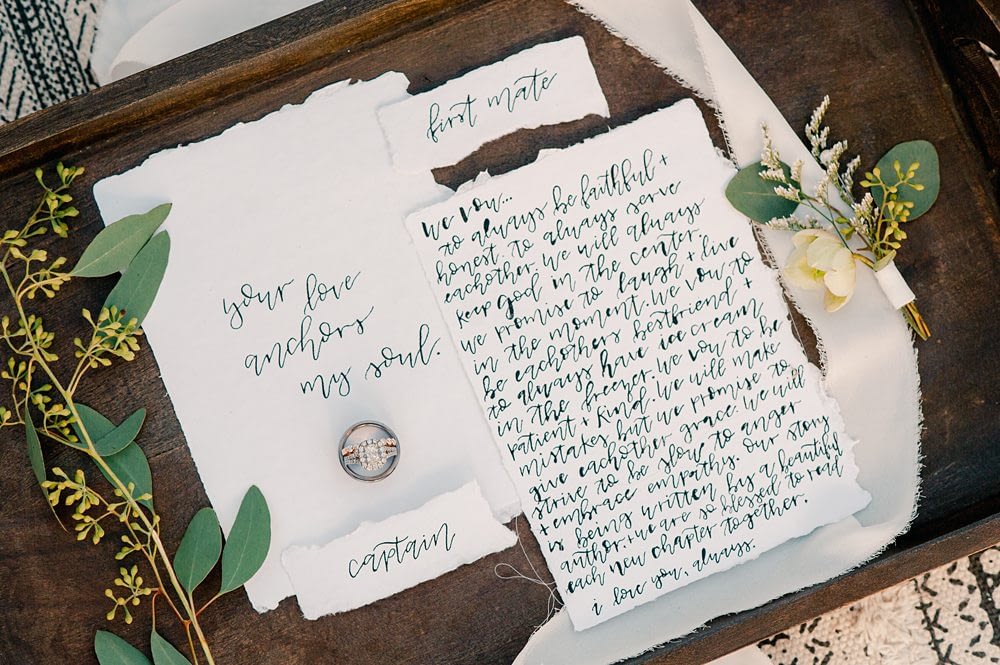 first mate
your love
anchors
my soul.
captain
we vow...
to always be faithful +
honest. to always serve
eachother. we will always
keep god in the center.
we promise to laugh + live
in the moment. we vow to
be eachothers bestfriend +
to always have ice cream
in the freezer. we vow to be
patient + kind. we will make
mistakes but we promise to
give eachother grace. we will
strive to be slow to anger
+ embrace empathy. our story
is being written by a beautiful
author, + we are so blessed to read
each new chapter together.
i love you, always.